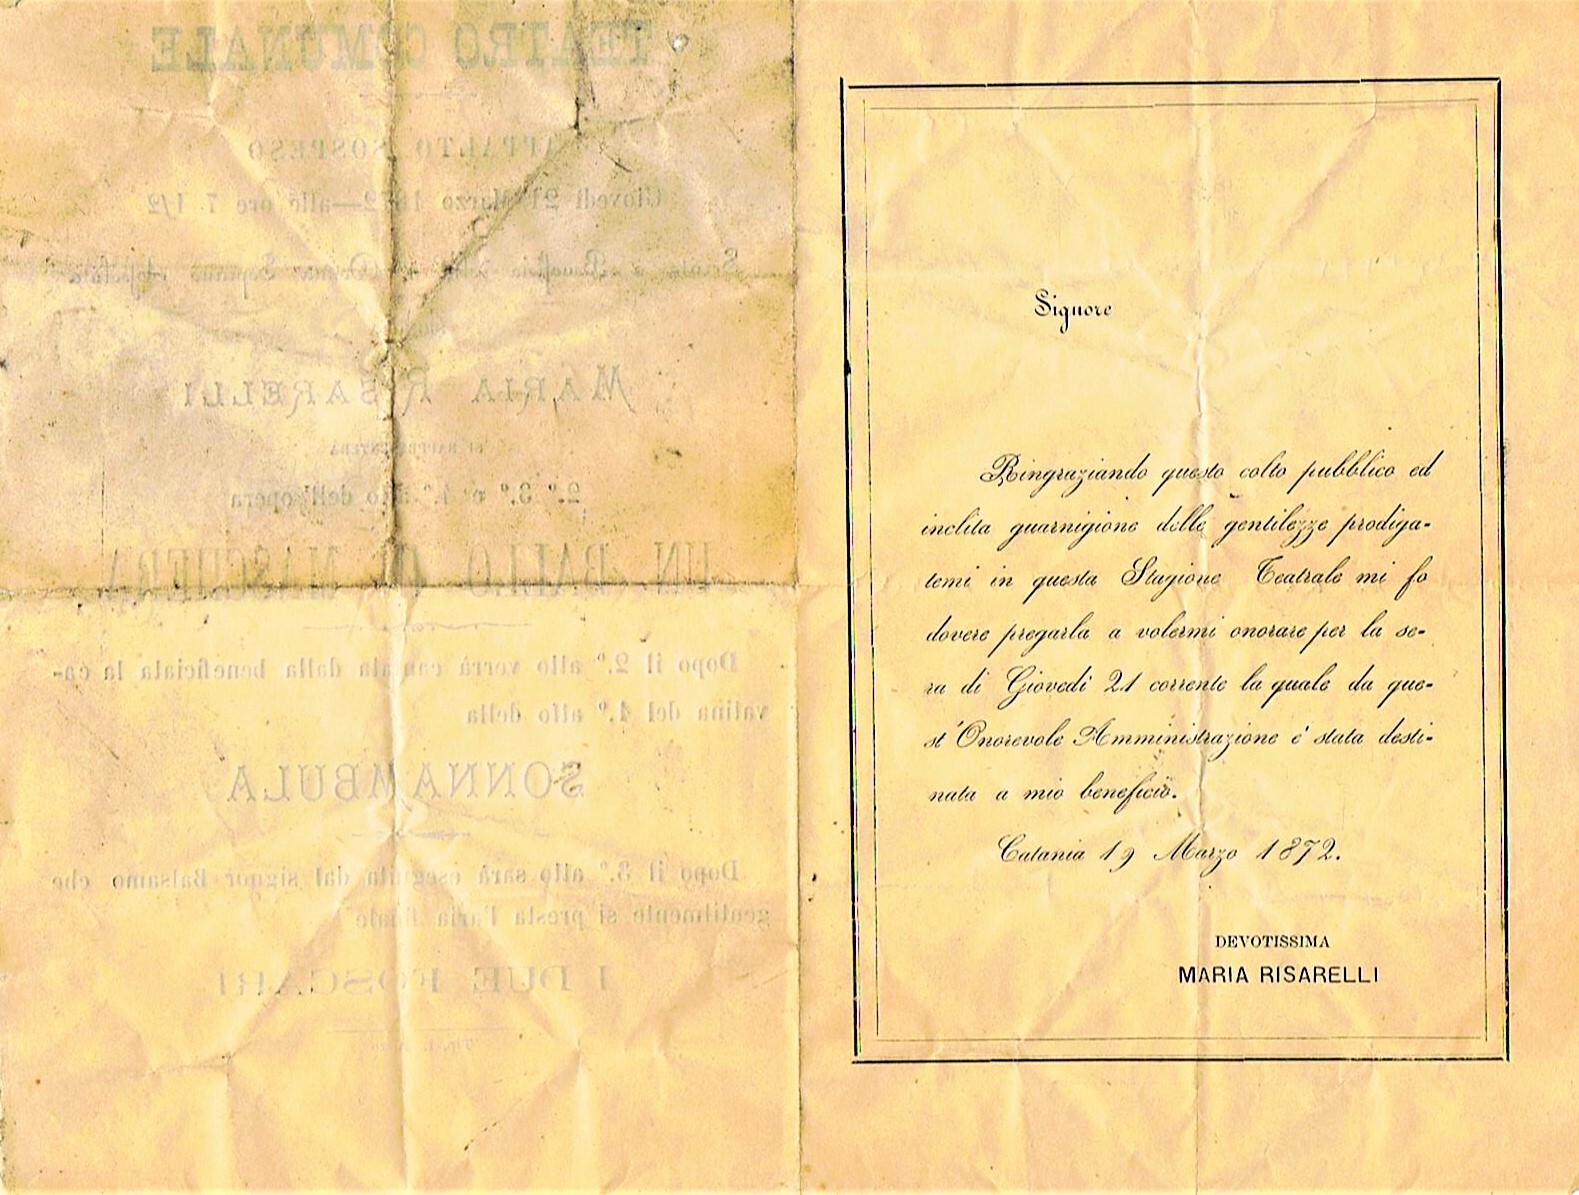 TEATRO COMUNALE
APPALTO SOSPESO
Giovedì 21 Marzo 1872—alle ore 7 1/2
Serata a Beneficio della Prima Soprano Assoluta
MARIA RISARELLI
SI RAPPRESENTERÀ
2.° 3.° e 4.° atto dell'opera
UN BALLO IN MASCHERA
Dopo il 2.° atto verrà cantata dalla beneficiata la ca-
vatina del 4.° atto della
SONNAMBULA
Dopo il 3.° atto sarà eseguita dal signor Balsamo che
gentilmente si presta l'aria finale
I DUE FOSCARI
Signore
Ringraziando questo colto pubblico ed
inclita guarnigione delle gentilezze prodiga-
temi in questa Stagione Teatrale mi fo
dovere pregarla a volermi onorare per la se-
ra di Giovedì 21 corrente la quale da que-
st'Onorevole Amministrazione è stata desti-
nata a mio beneficio.
Catania 19 Marzo 1872.
DEVOTISSIMA
MARIA RISARELLI